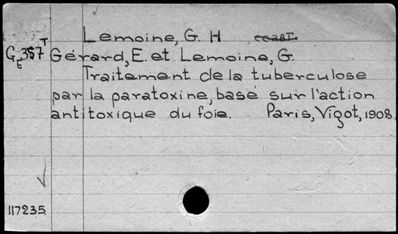 Lemoine, G. H
GE 357 T Gérard, E. et Lemoine, G.
Traitement de la tuberculose
par la paratoxine, basé sur l'action
antitoxique du foie. Paris, Vigot, 1908.
117235